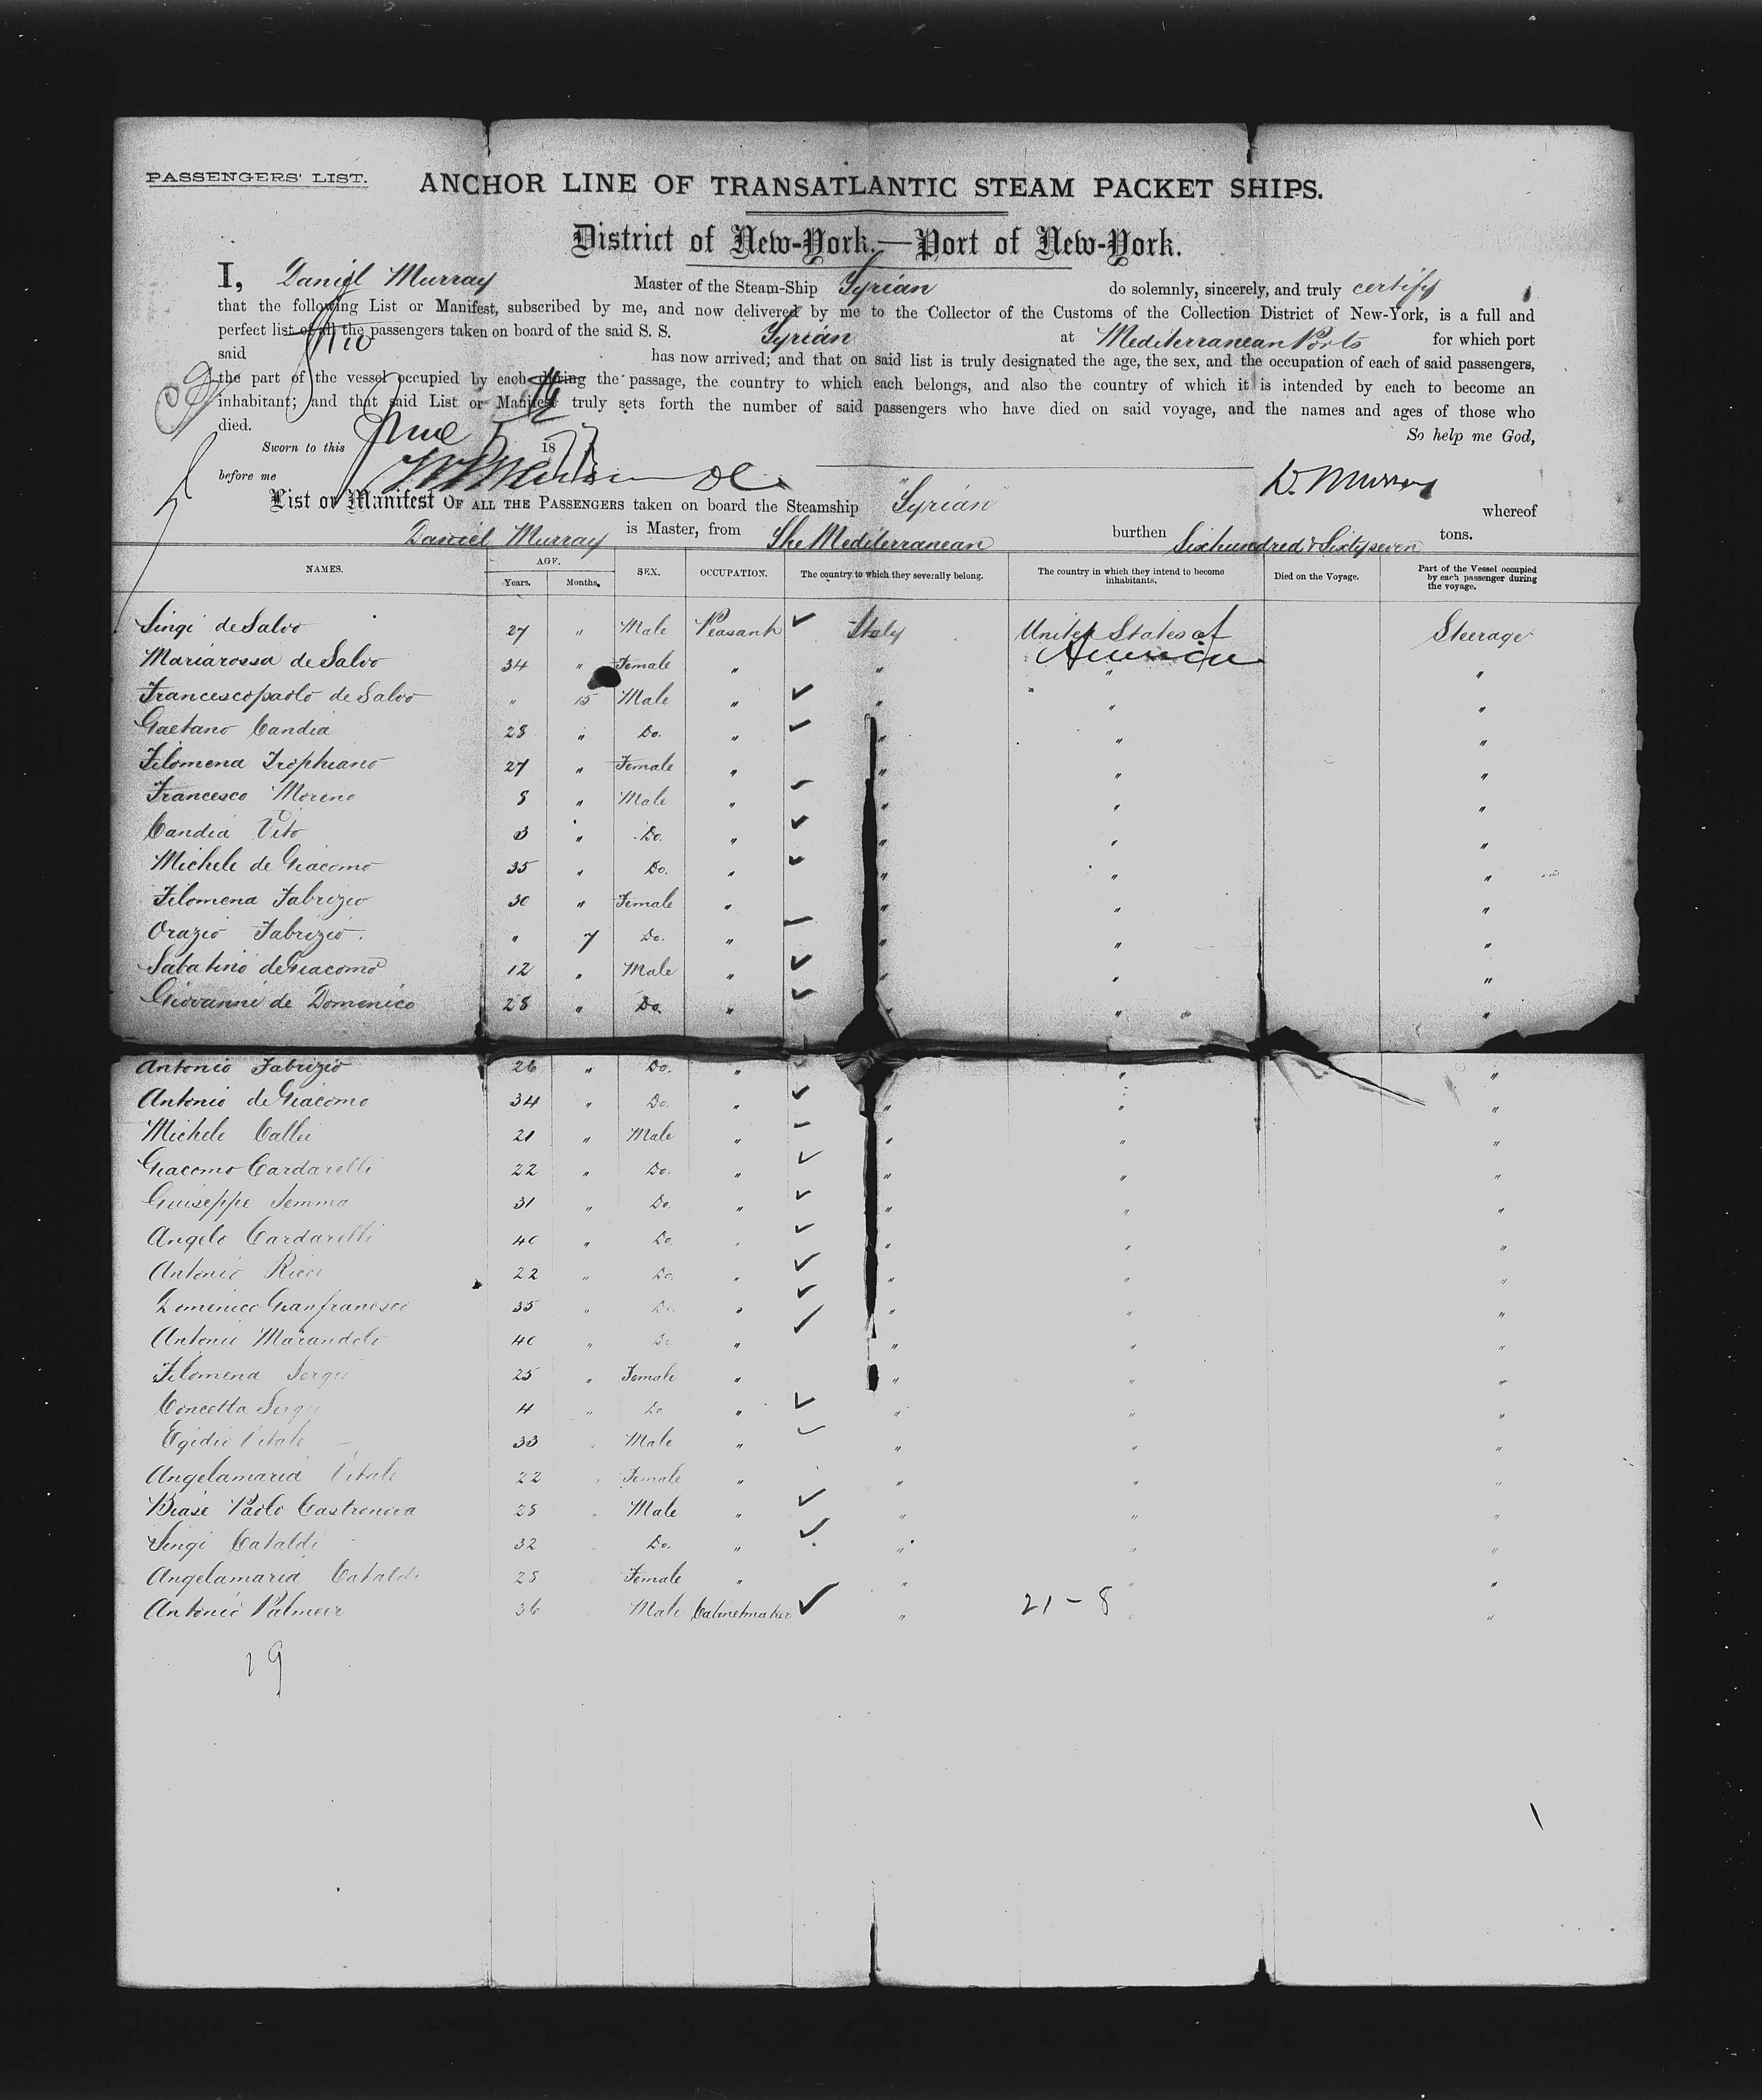 PASSENGERS' LIST.
ANCHOR LINE OF TRANSATLANTIC STEAM PACKET SHIPS.
District of New-York.—Port of New-York.
I, Daniel Murray Master of the Steam-Ship Syrian do solemnly, sincerely, and truly certify
that the following List or Manifest, subscribed by me, and now delivered by me to the Collector of the Customs of the Collection District of New-York, is a full and
perfect list of all the passengers taken on board of the said S. S. Syrian at Mediterranean Ports for which port
said has now arrived; and that on said list is truly designated the age, the sex, and the occupation of each of said passengers,
the part of the vessel occupied by each during the passage, the country to which each belongs, and also the country of which it is intended by each to become an
inhabitant; and that said List or Manifest truly sets forth the number of said passengers who have died on said voyage, and the names and ages of those who
died. So help me God,
Sworn to this June 18
before me D. Murray
List or Manifest OF ALL THE PASSENGERS taken on board the Steamship "Syrian" whereof
Daniel Murray is Master, from The Mediterranean burthen Sixhundred & Sixtyseven tons.
NAMES. AGE. Years. Months. SEX. OCCUPATION. The country to which they severally belong. The country in which they intend to become inhabitants. Died on the Voyage. Part of the Vessel occupied by each passenger during the voyage.
Singi de Salvo 27 " Male Peasant Italy United States of America Steerage
Mariarossa de Salvo 34 " Female " " " "
Francescopaolo de Salvo " 15 Male " " " "
Gaetano Candia 28 " Do. " " " "
Filomena Trophiano 27 " Female " " " "
Francesco Moreno 8 " Male " " " "
Candia Vito 3 " Do. " " " "
Michele de Giacomo 35 " Do. " " " "
Filomena Fabrizio 30 " Female " " " "
Orazio Fabrizio. " 7 Do. " " " "
Sabatino de Giacomo 12 " Male " " " "
Giovanni de Domenico 28 " Do. " " " "
Antonio Fabrizio 26 " Do. " " "
Antonio de Giacomo 34 " Do. " " " "
Michele Callei 21 " Male " " " "
Giacomo Cardarelli 22 " Do. " " " "
Guiseppe Iemma 31 " Do. " " " "
Angelo Cardarelli 40 " Do. " " " "
Antonio Ricci 22 " Do. " " " "
Domenico Gianfranesco 35 " Do. " " " "
Antonio Marandolo 40 " Do. " " " "
Filomena Sergi 25 " Female " " " "
Concetta Sergi 4 " Do " " " "
Egidio Vitale 33 " Male " " " "
Angelamaria Vitale 22 " Female " " " "
Biase Paolo Castronova 28 " Male " " " "
Singi Cataldi 32 " Do. " " " "
Angelamaria Cataldi 28 " Female " " " "
Antonio Palmeer 36 " Male Cabinetmaker " 21-8 " "
29